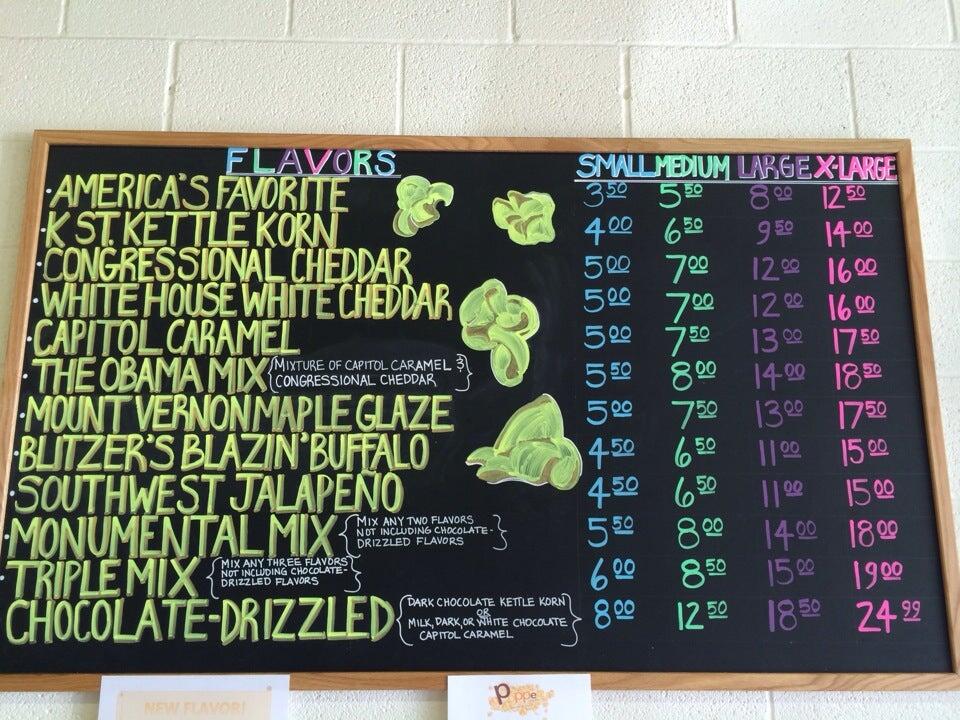 FLAVORS SMALL MEDIUM LARGE X-LARGE
AMERICA'S FAVORITE 3.50 5.50 8.00 12.50
K ST. KETTLE KORN 4.00 6.50 9.50 14.00
CONGRESSIONAL CHEDDAR 5.00 7.00 12.00 16.00
WHITE HOUSE WHITE CHEDDAR 5.00 7.00 12.00 16.00
CAPITOL CARAMEL 5.00 7.50 13.00 17.50
THE OBAMA MIX {MIXTURE OF CAPITOL CARAMEL & CONGRESSIONAL CHEDDAR} 5.50 8.00 14.00 18.50
MOUNT VERNON MAPLE GLAZE 5.00 7.50 13.00 17.50
BLITZER'S BLAZIN' BUFFALO 4.50 6.50 11.00 15.00
SOUTHWEST JALAPEÑO 4.50 6.50 11.00 15.00
MONUMENTAL MIX {MIX ANY TWO FLAVORS NOT INCLUDING CHOCOLATE-DRIZZLED FLAVORS} 5.50 8.00 14.00 18.00
TRIPLE MIX {MIX ANY THREE FLAVORS NOT INCLUDING CHOCOLATE-DRIZZLED FLAVORS} 6.00 8.50 15.00 19.00
CHOCOLATE-DRIZZLED {DARK CHOCOLATE KETTLE KORN OR MILK, DARK, OR WHITE CHOCOLATE CAPITOL CARAMEL} 8.00 12.50 18.50 24.99
NEW FLAVOR!